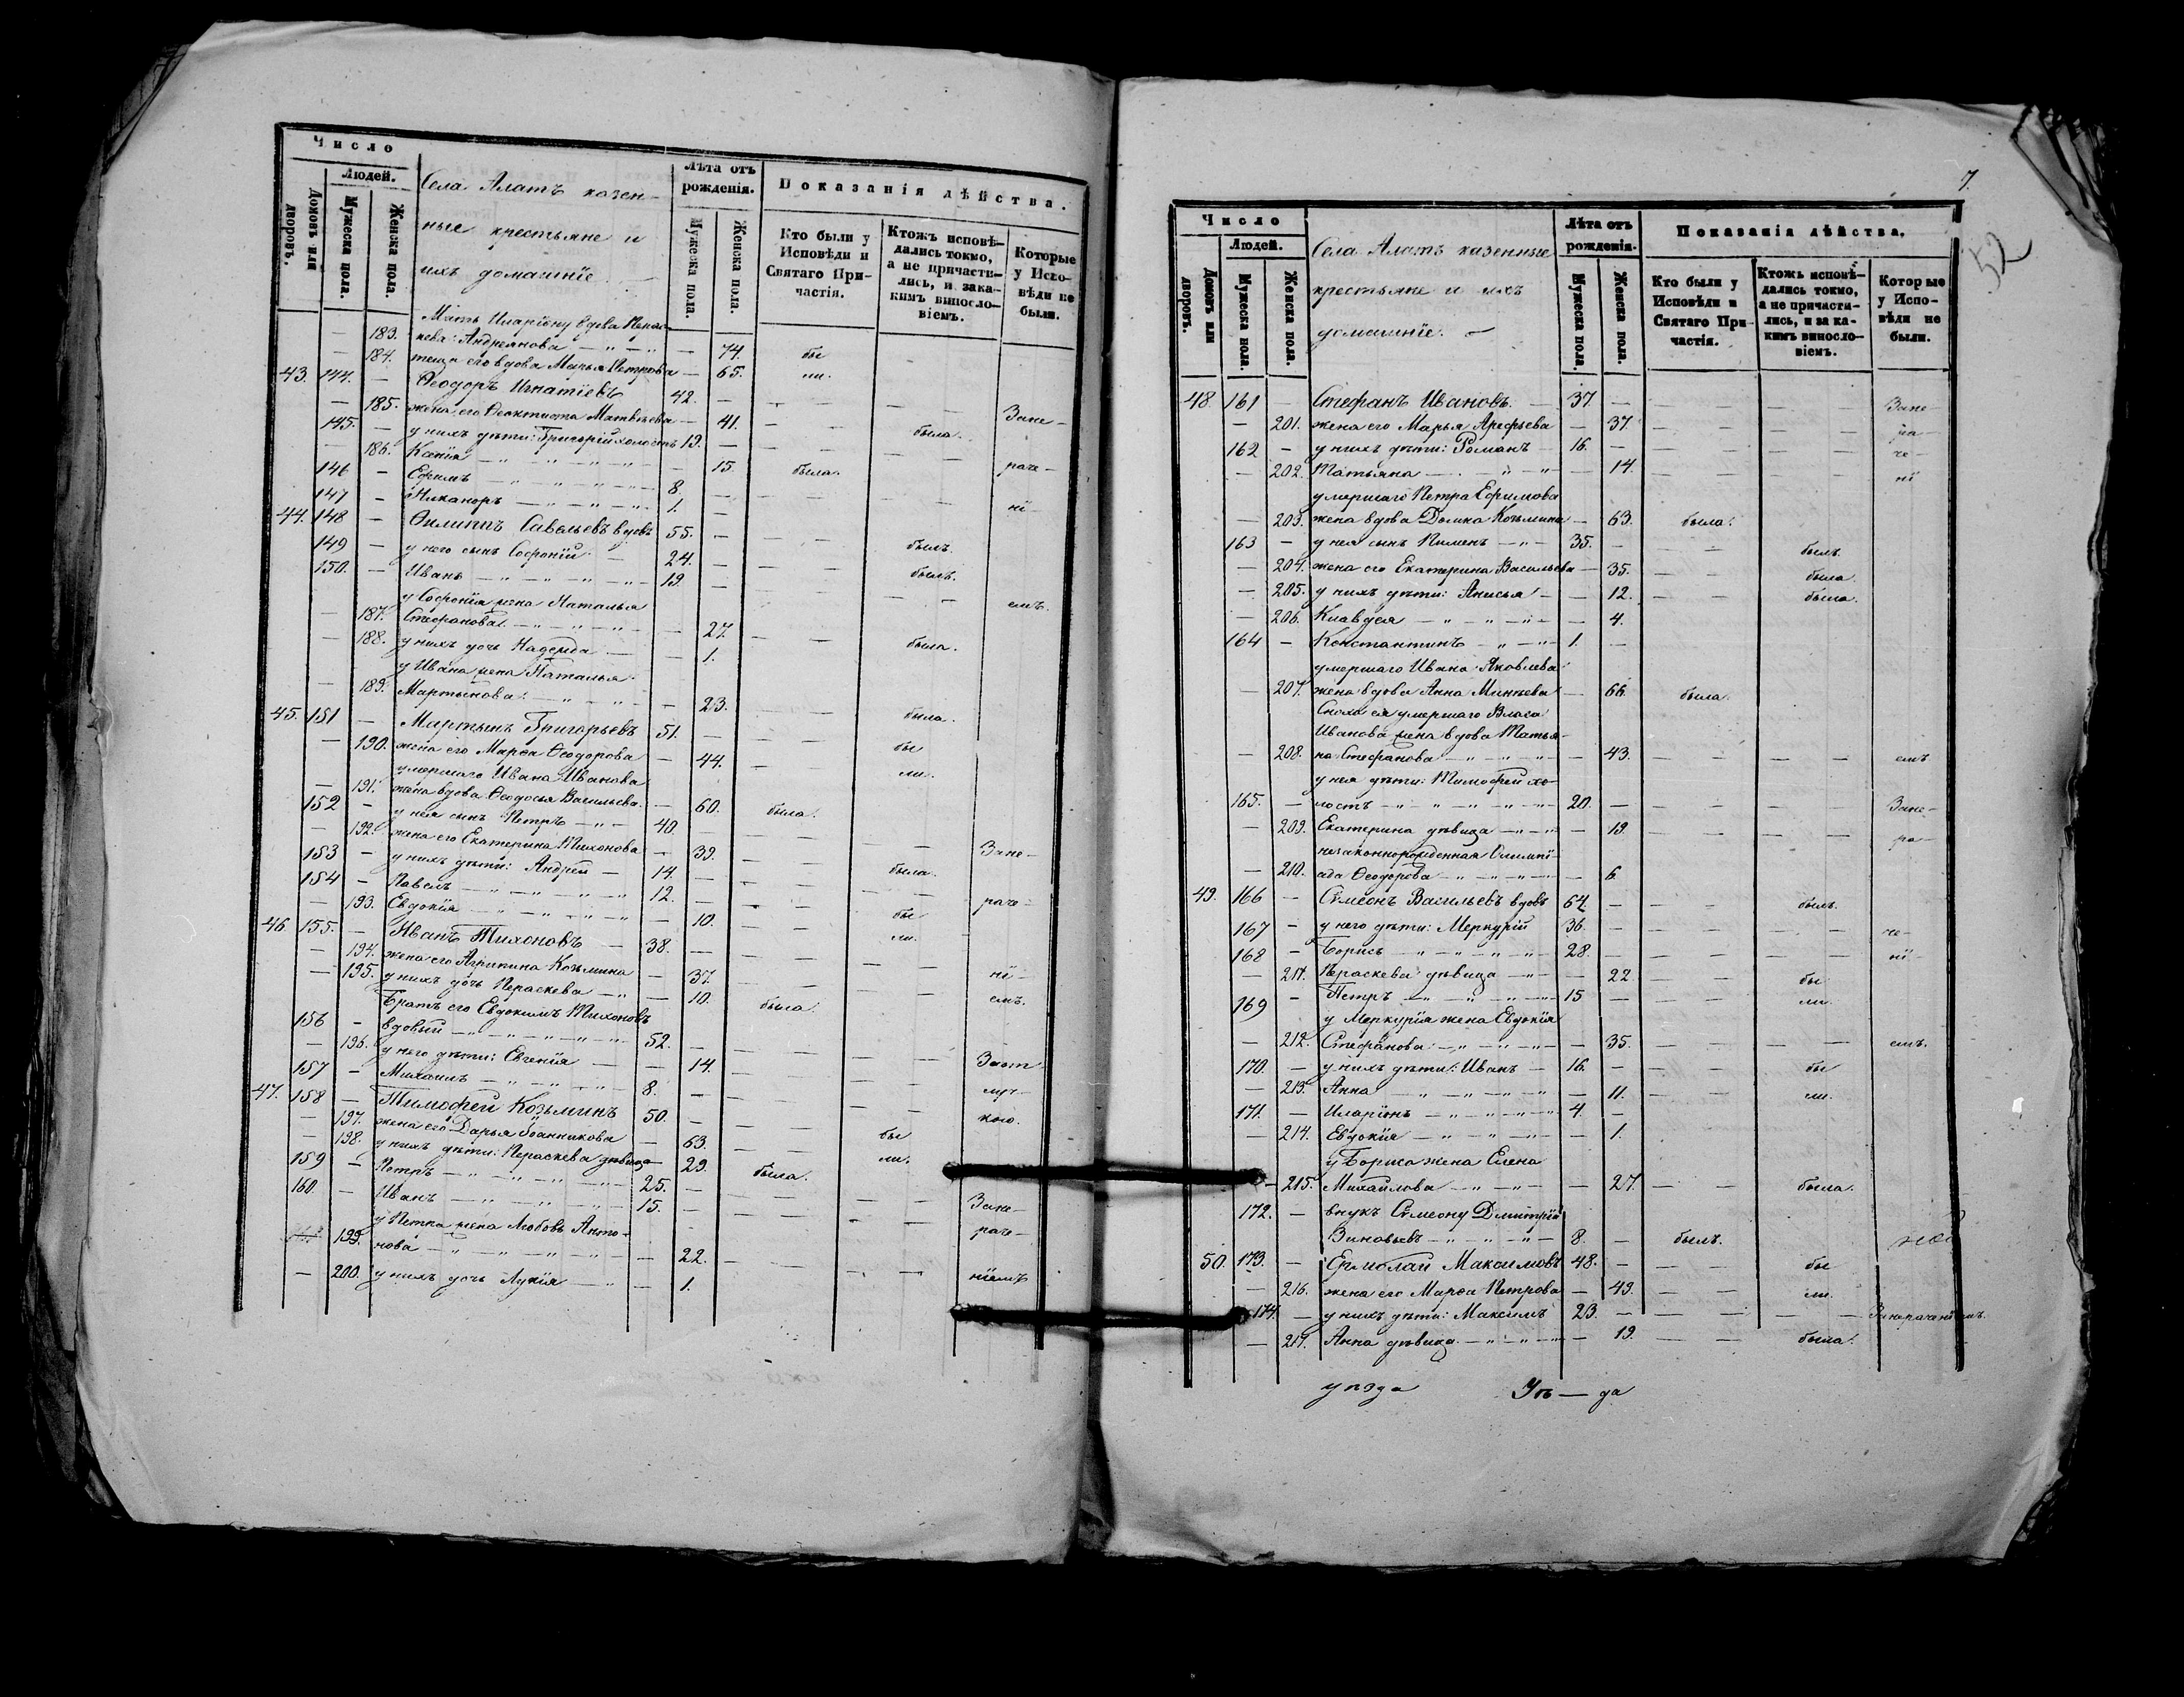 Число
Людей.
Домовъ или дворовъ.
Мужеска пола.
Женска пола.
Села Алатъ казен-
ные крестьяне и
ихъ домашніе.
Лѣта отъ рожденія.
Мужеска пола.
Женска пола.
Показанія дѣйства.
Кто были у Исповѣди и Святаго Причастія.
Ктожъ исповѣдались токмо, а не причастились, и за какимъ винословіемъ.
Которые у Исповѣди не были.
Мать Иларіону вдова
183. Андреянова — 74. бы
— 184. теща его вдова Марья Петрова — 65. ли.
43. 144. — Ѳеодоръ Игнатіевъ 42. —
— 185. жена его Ѳеоктиста Матвѣева — 41. Зане-
145. — у нихъ дѣти: Григорій холостъ 19. — была.
— 186. Ксенія — 15. была. раче-
146 — Ефимъ 8. —
147 — Никаноръ 1. — ні
44. 148 — Филиппъ Савельевъ вдовъ 55. —
149 — у него сынъ Софроній 24. — былъ.
150. — Иванъ 19. — былъ.
у Софронія жена Наталья
— 187. Стефанова — 27. емъ.
— 188. у нихъ дочь Надежда — 1. была.
у Ивана жена Наталья
— 189. Мартынова — 23.
45. 151 — Мартынъ Григорьевъ 51. — была.
— 190. жена его Марѳа Ѳеодорова — 44. бы
умершаго Ивана Иванова ли.
— 191. жена вдова Ѳеодосья Васильева — 60. была.
152 — у нея сынъ Петръ 40. —
— 192. жена его Екатерина Тихонова — 39. Зане-
153 — у нихъ дѣти: Андрей — 14. — была.
154 — Павелъ 12. —
— 193. Евдокія — 10. раче-
46 155. — Иванъ Тихоновъ — 38. — бы
— 194. жена его Агрипина Козьмина — 37. ли.
— 195. у нихъ дочь Параскева — 10. была. ні
Братъ его Евдокимъ Тихоновъ емъ.
156 — вдовый 52. —
— 196. у него дѣти: Евгенія — 14.
157 — Михаилъ 8. —
47. 158 — Тимофей Козьминъ 50. —
— 197. жена его Дарья — 63. бы
— 198. у нихъ дѣти: Параскева дѣвица — 29. была. ли.
159 — Петръ 25. —
160. — Иванъ 15. — Зане-
у Петра жена Любовь Анто- раче-
199. нова — 22.
— 200. у нихъ дочь Лукія — 1. ніемъ
7.
52
Число
Людей.
Домовъ или дворовъ.
Мужеска пола.
Женска пола.
Села Алатъ казенные
крестьяне и ихъ
домашніе. —
Лѣта отъ рожденія.
Мужеска пола.
Женска пола.
Показанія дѣйства.
Кто были у Исповѣди и Святаго Причастія.
Ктожъ исповѣдались токмо, а не причастились, и за какимъ винословіемъ.
Которые у Исповѣди не были.
48 161 — Стефанъ Ивановъ. — 37. — Зане-
— 201. жена его Марья Арефьева — 37. ра-
162 — у нихъ дѣти: Романъ 16. — че-
— 202. Татьяна — 14. ні
умершаго Петра Ефимова
— 203. жена вдова Домна Козьмина — 63. была.
163 — у нея сынъ Пименъ 35. — былъ.
— 204. жена его Екатерина Васильева — 35. была.
— 205. у нихъ дѣти: Анисья — 12. была.
— 206. Клавдія — 4.
164 — Константинъ 1. —
умершаго Ивана Яковлева
— 207. жена вдова Анна Минѣева — 66. была.
Сноха ея умершаго Власа
Иванова жена вдова Татья-
— 208. на Стефанова — 43. емъ
у нея дѣти: Тимофей хо-
165. — лостъ 20. — Зане-
— 209. Екатерина дѣвица — 19 ра-
незаконнорожденная Олимпі-
— 210. ада Ѳеодорова — 6
49. 166 — Сѵмеонъ Васильевъ вдовъ 64. — былъ.
167 — у него дѣти: Меркурій 36. — че-
168 — Борисъ 28. — ні-
— 211. Параскева дѣвица — 22. бы
169 — Петръ 15 — ли.
у Меркурія жена Евдокія
— 212. Стефанова — 35. емъ.
170. — у нихъ дѣти: Иванъ — 16. — бы
— 213. Анна — 11. ли.
171. — Иларіонъ 4. —
— 214. Евдокія — 1.
у Бориса жена Елена
— 215. Михайлова — 27. была.
172. — внукъ Сѵмеону Дмитрій
Зиновьевъ 8. — былъ.
50. 173. — Ермолай Максимовъ 48. — бы
— 216. жена его Марѳа Петрова — 49. ли.
174. — у нихъ дѣти: Максимъ 23. — Занераченіемъ.
— 217. Анна дѣвица — 19. была.
уѣзда Уѣ — да